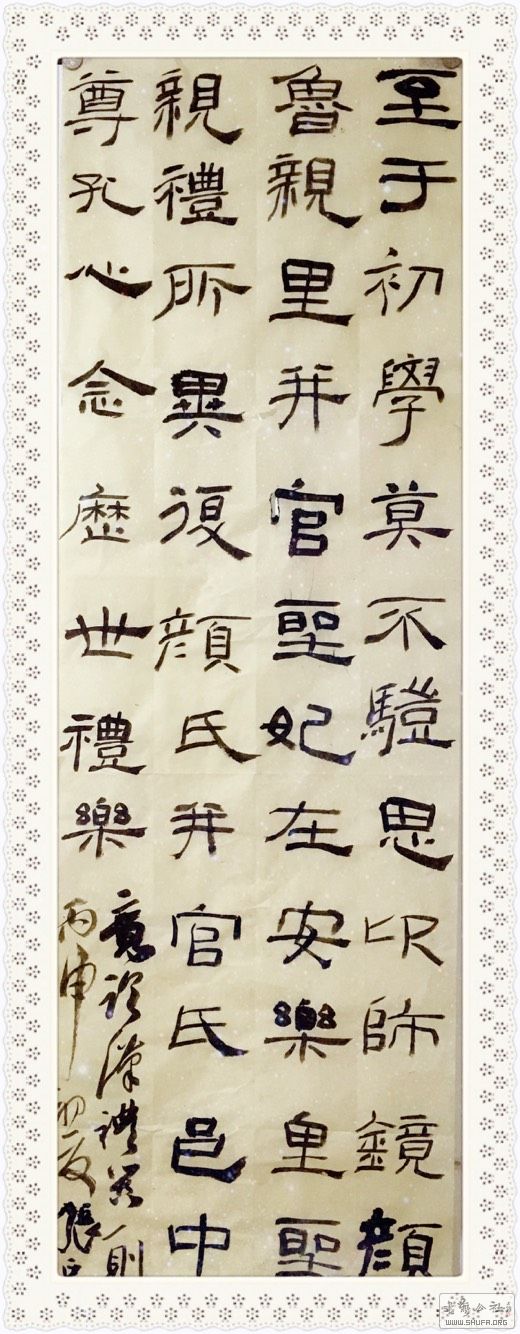 至于初學莫不騹思卬師鏡顏
魯親里并官聖妃在安樂里聖
親禮所異復顏氏并官氏邑中
尊孔心念歷世禮樂
意臨漢禮器一則
丙申初夏張
WWW.SHUFA.ORG